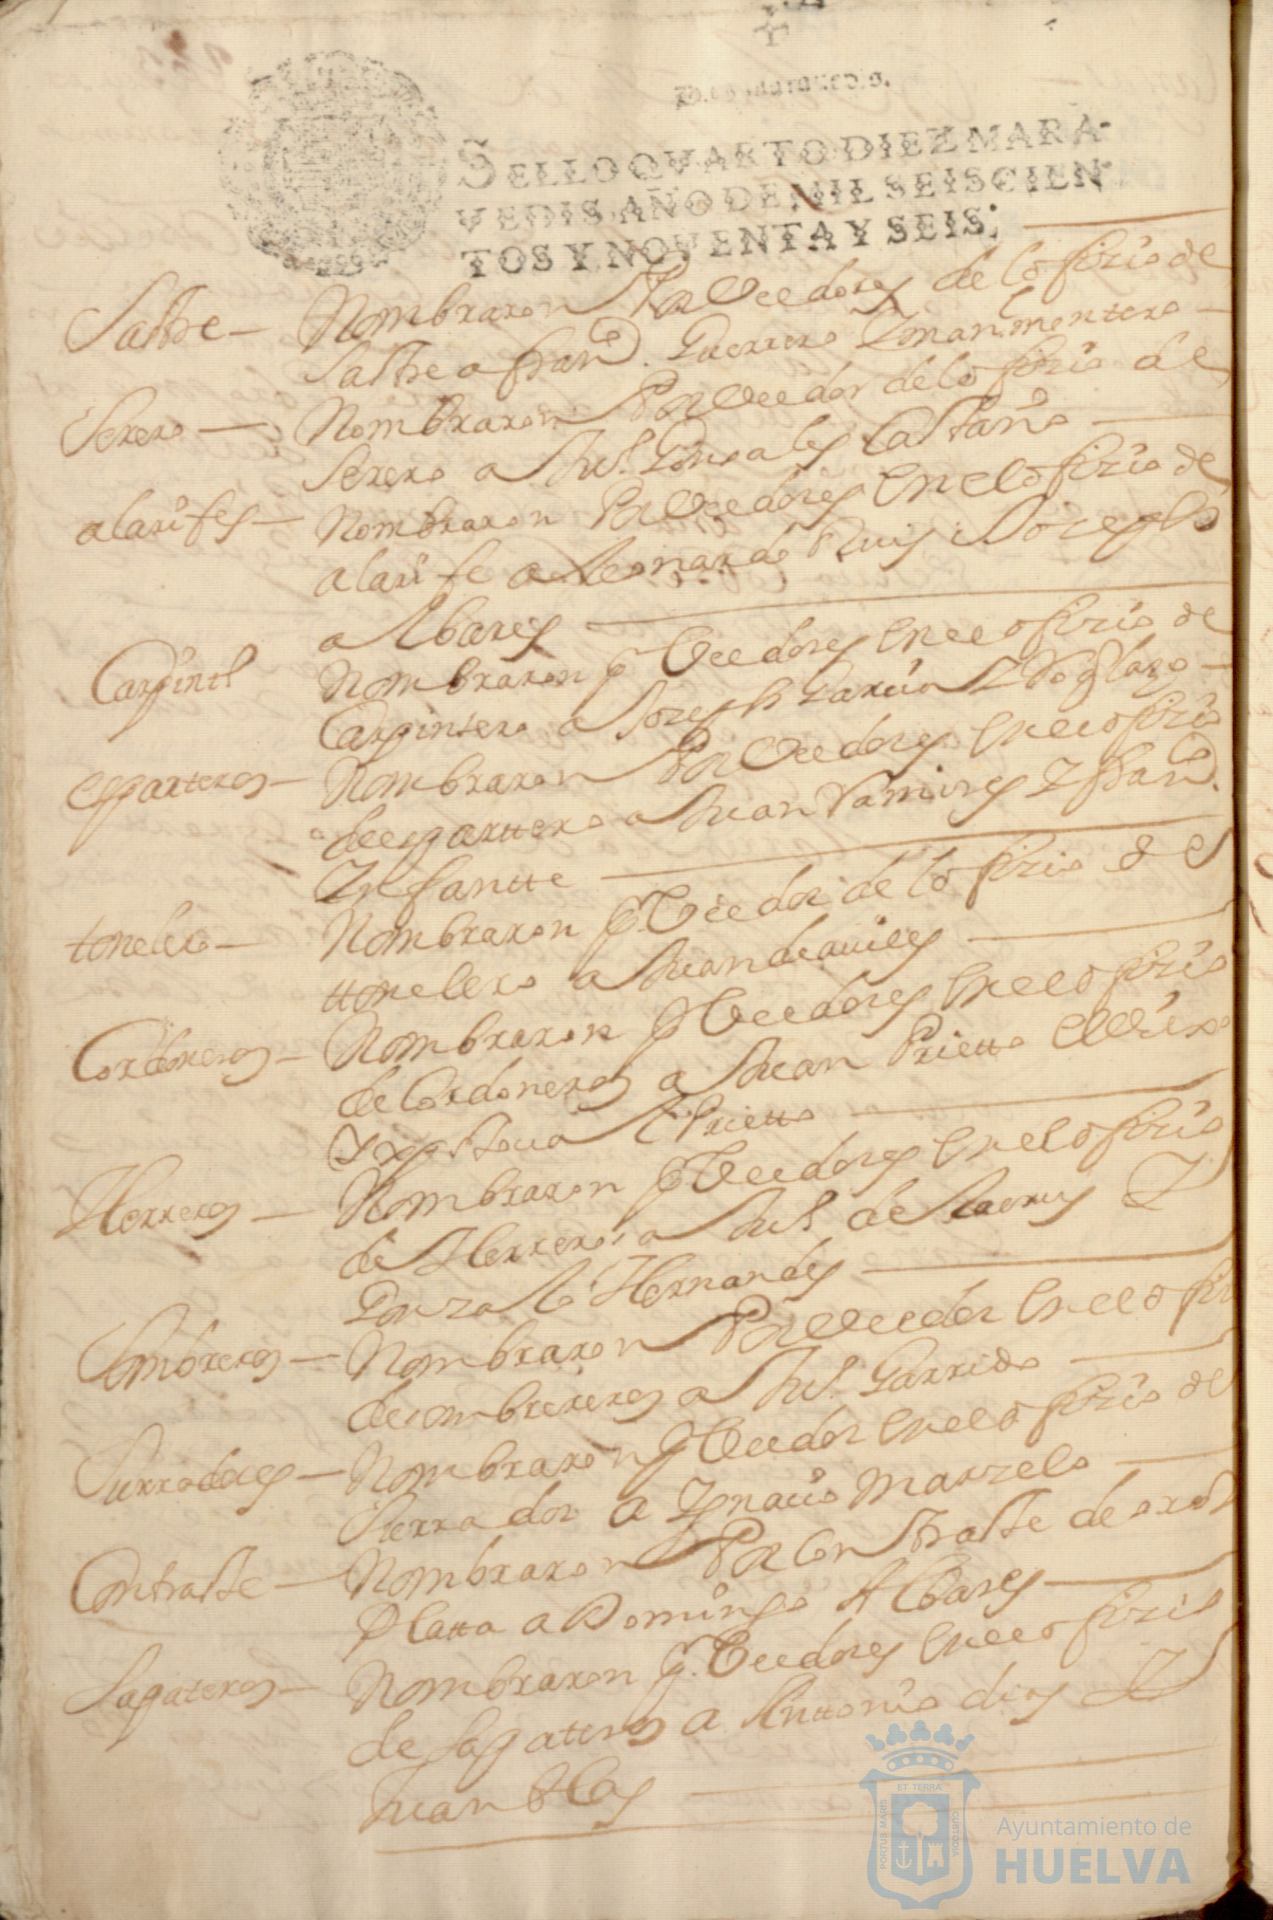 Diez maravedis.
SELLO QVARTO DIEZ MARA-
VEDIS AÑO DE MIL SEISCIEN
TOS Y NOVENTA Y SEIS.
Sastre — Nombraron Por Veedores de lofizio de
sastre a fran.co Guerrero Y man.l montero —
Serero — Nombraron Por Veedor de lofizio de
Serero a Ju.o Gonsales Castaño —
alarifes — Nombraron Por Veedores En elofizio de
alarife a Leonardo Ruis
a Albares —
Carpint.o Nombraron p Veedores En el ofizio de
Carpintero a Joseph Garcia Y
esparteros — Nombraron Por Veedores En el ofizio
de espartero a Juan Ramires Y fran.co
Ynfantte —
tonelero — Nombraron p Veedor de lofizio de
ttonelero a Juan de aviles —
Cordoneros — Nombraron p Veedores En el ofizio
de Cordoneros a Juan Prietto el
Prietto —
Herreros — Nombraron p Veedores En el ofizio
de Herreros a Ju.o de Y
Gonzalo Hernandes —
Sombreros — Nombraron Por Veedor En el ofizi
de sombrereros a Ju.o Garrido —
Surradores — Nombraron p Veedor En el ofizio de
Surrador a Ygnacio Marzelo —
Contraste — Nombraron Por Contraste de oro Y
Platta a Domingo Albares —
Sapateros — Nombraron p. Veedores En el ofizio
de Sapateros a Anttonio dias Y
Juan Blas —
ET TERRÆ
PORTUS MARIS
CUSTODIA
Ayuntamiento de
HUELVA